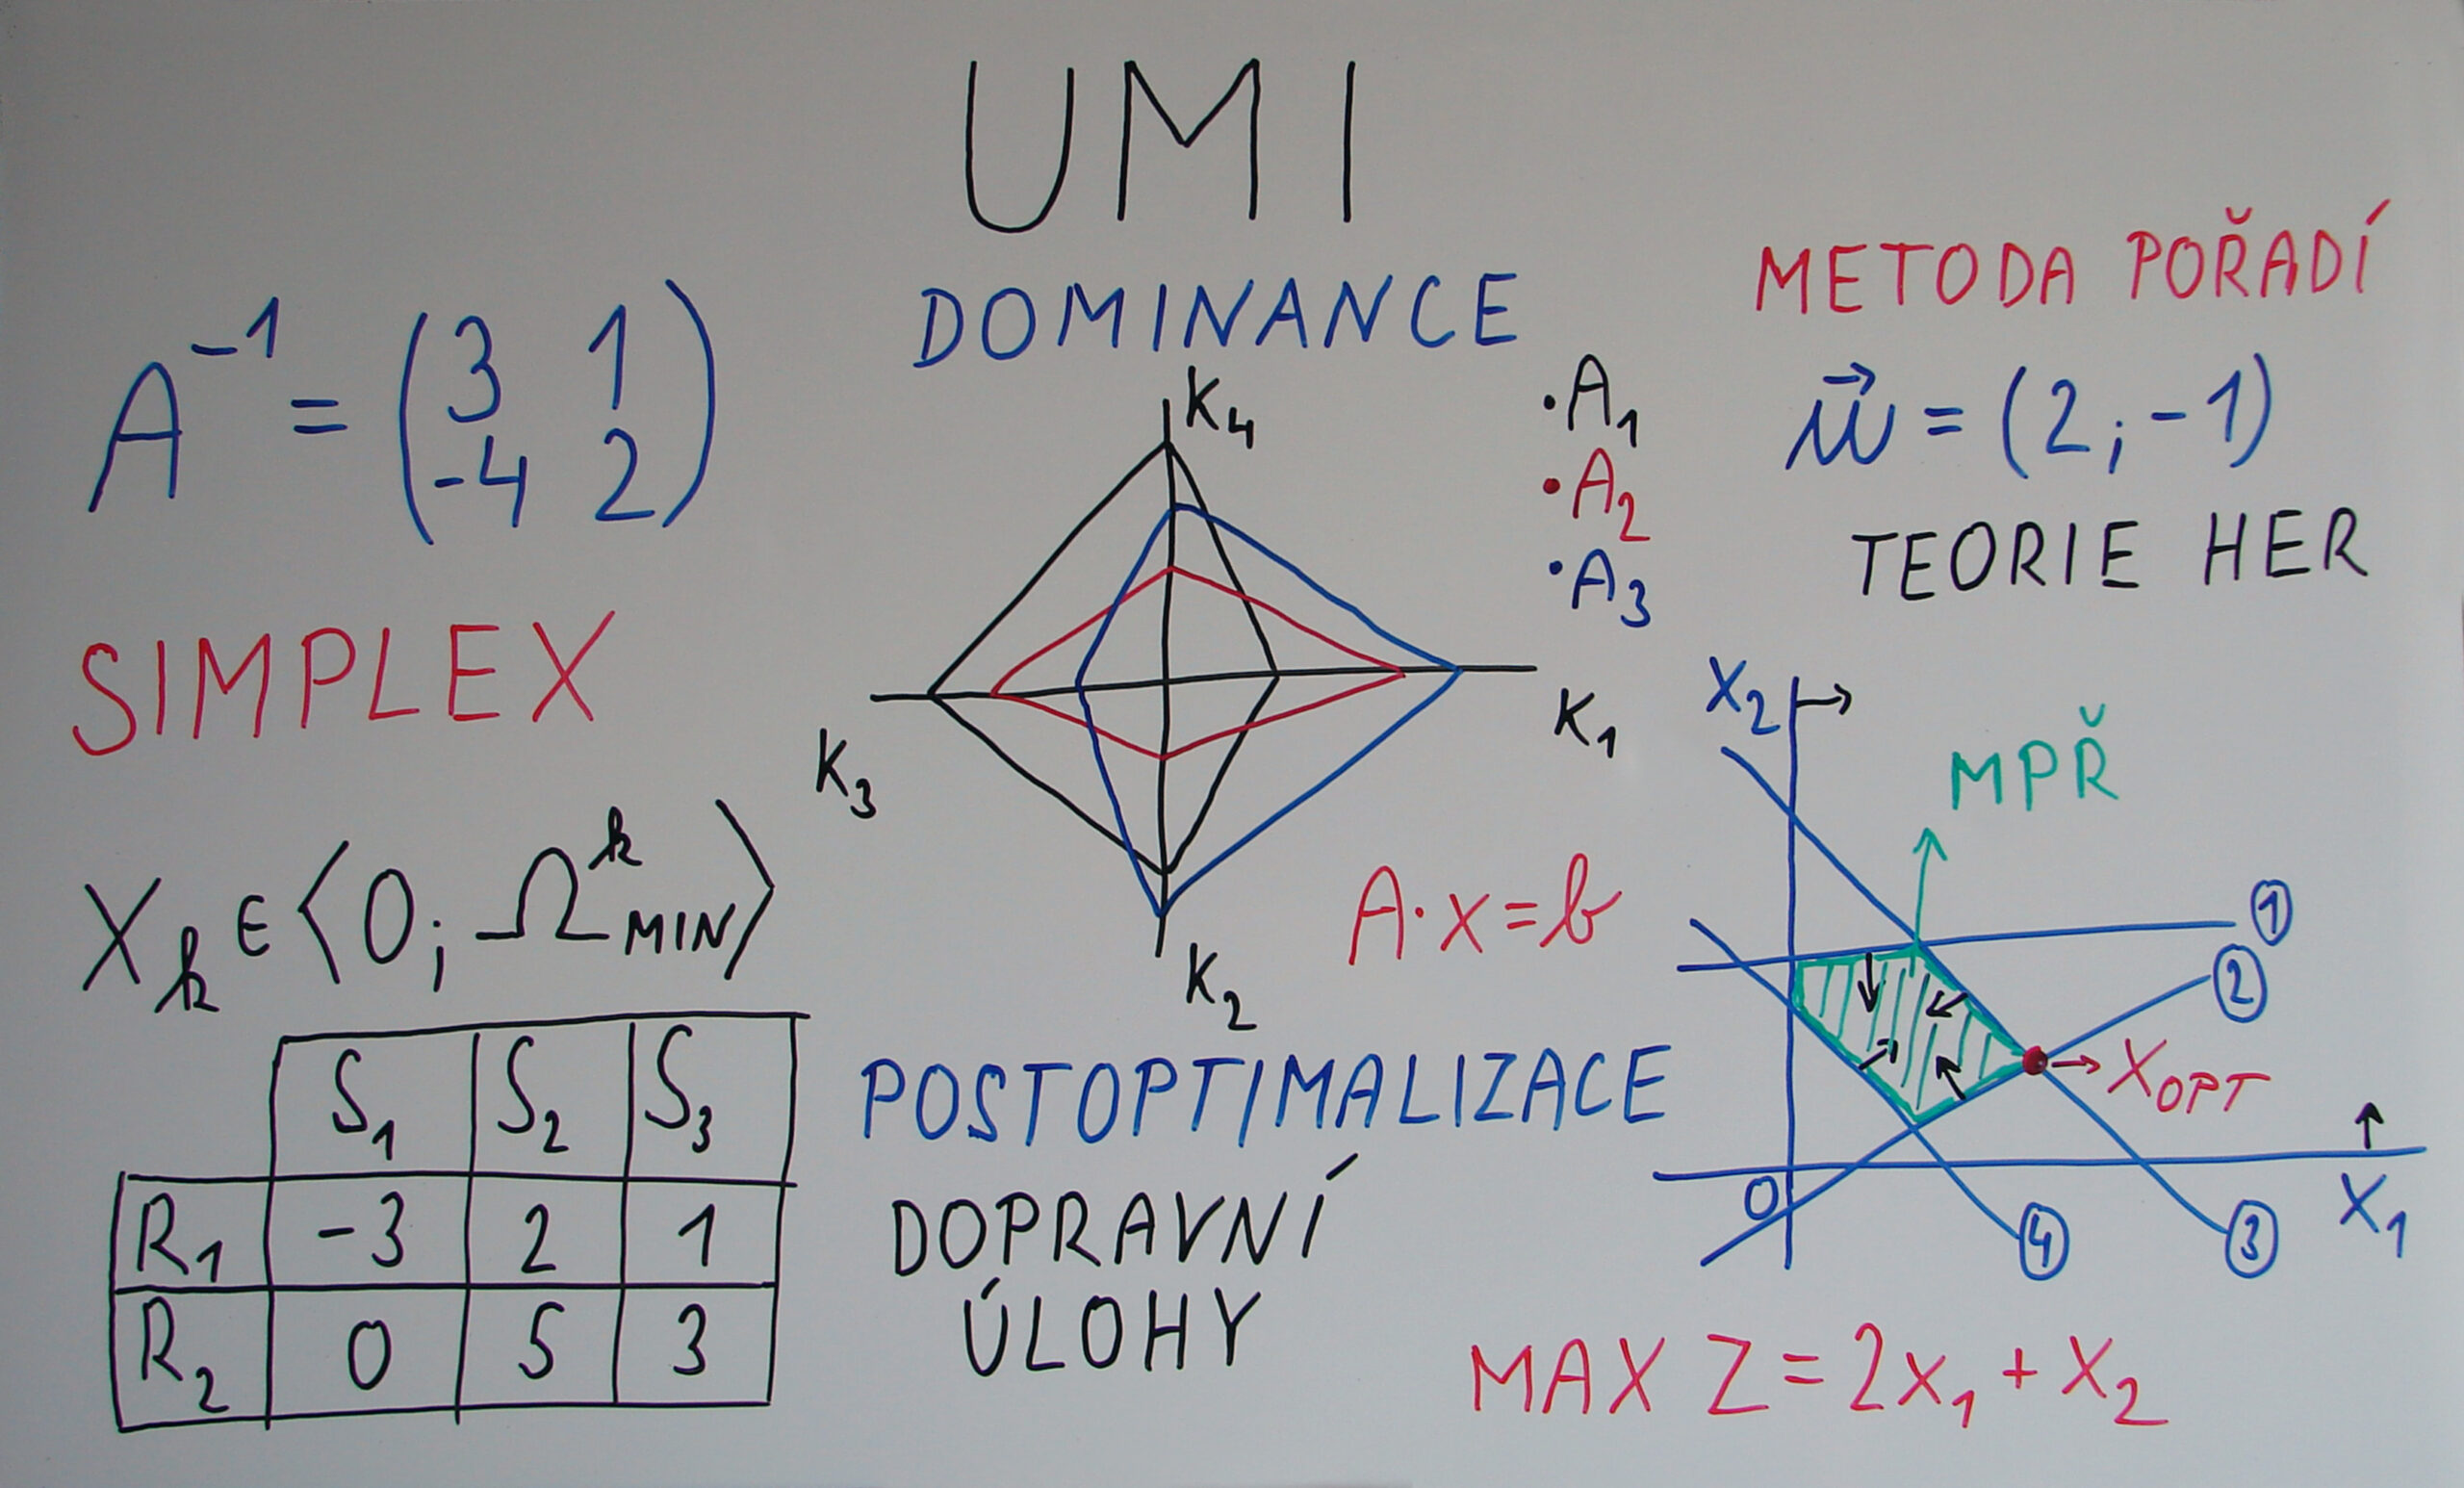 UMI
DOMINANCE
METODA POŘADÍ
A⁻¹ = (3 1
-4 2)
K₄
·A₁
·A₂
·A₃
K₁
K₃
K₂
w⃗ = (2;-1)
TEORIE HER
SIMPLEX
X₂
MPŘ
Xₖ ∈ ⟨0; Ωᵏ MIN⟩
A·x=b
①
②
X OPT
④
③
0
X₁
S₁ S₂ S₃
R₁ -3 2 1
R₂ 0 5 3
POSTOPTIMALIZACE
DOPRAVNÍ
ÚLOHY
MAX Z = 2x₁ + x₂